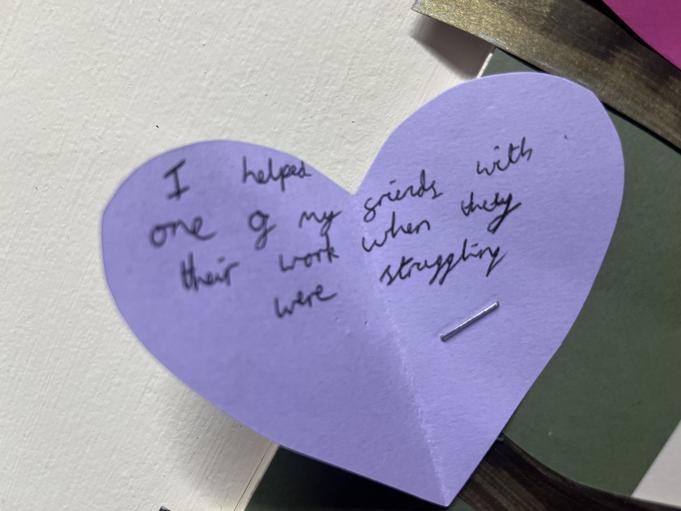 I helped
one of my friends with
their work when they
were struggling